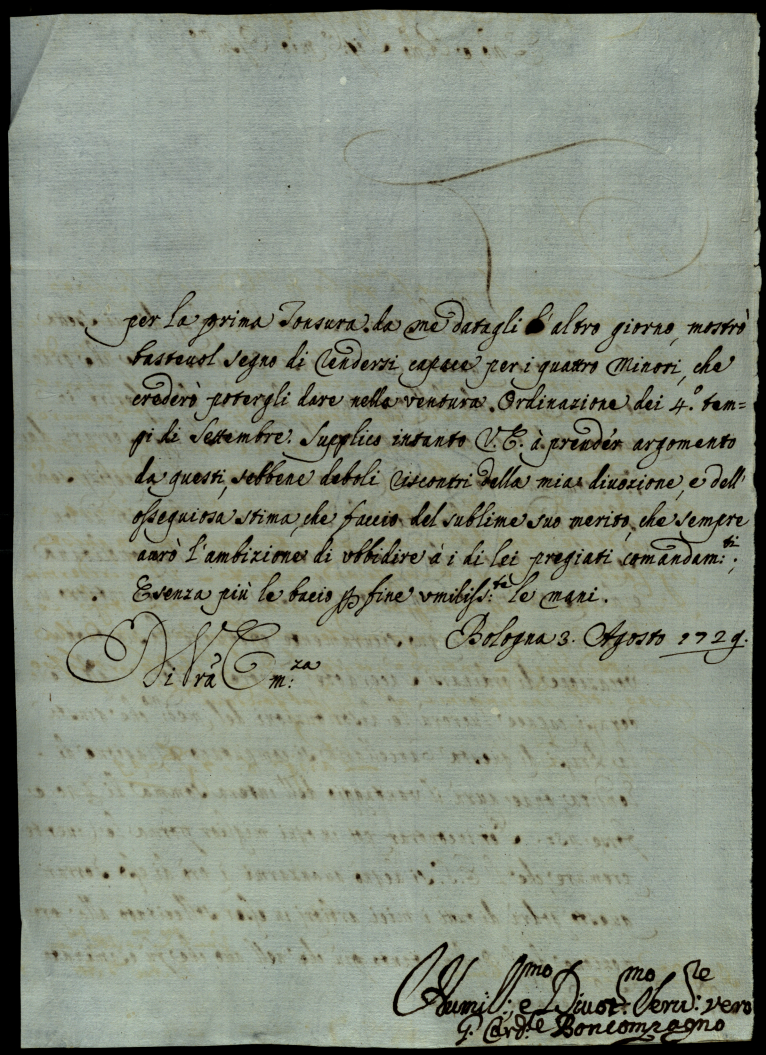 per la prima Tonsura da me datagli l'altro giorno, mostrò
basteuol segno di rendersi capace per i quattro Minori, che
crederò potergli dare nella ventura Ordinazione dei 4.º tem=
pi di Settembre. Supplico intanto V.E. à prender argomento
da questi, sebbene deboli riscontri della mia diuozione, e dell'
osseguiosa stima, che faccio del sublime suo merito, che sempre
aurò l'ambizione di vbbidire à i di lei pregiati comandam:ti;
E senza più le bacio per fine vmiliss:te le mani.
Bologna 3. Agosto 1729.
Di Vrã Em:za
Humil:mo e Diuot:mo Seru:re vero
G. Card:le Boncompagno